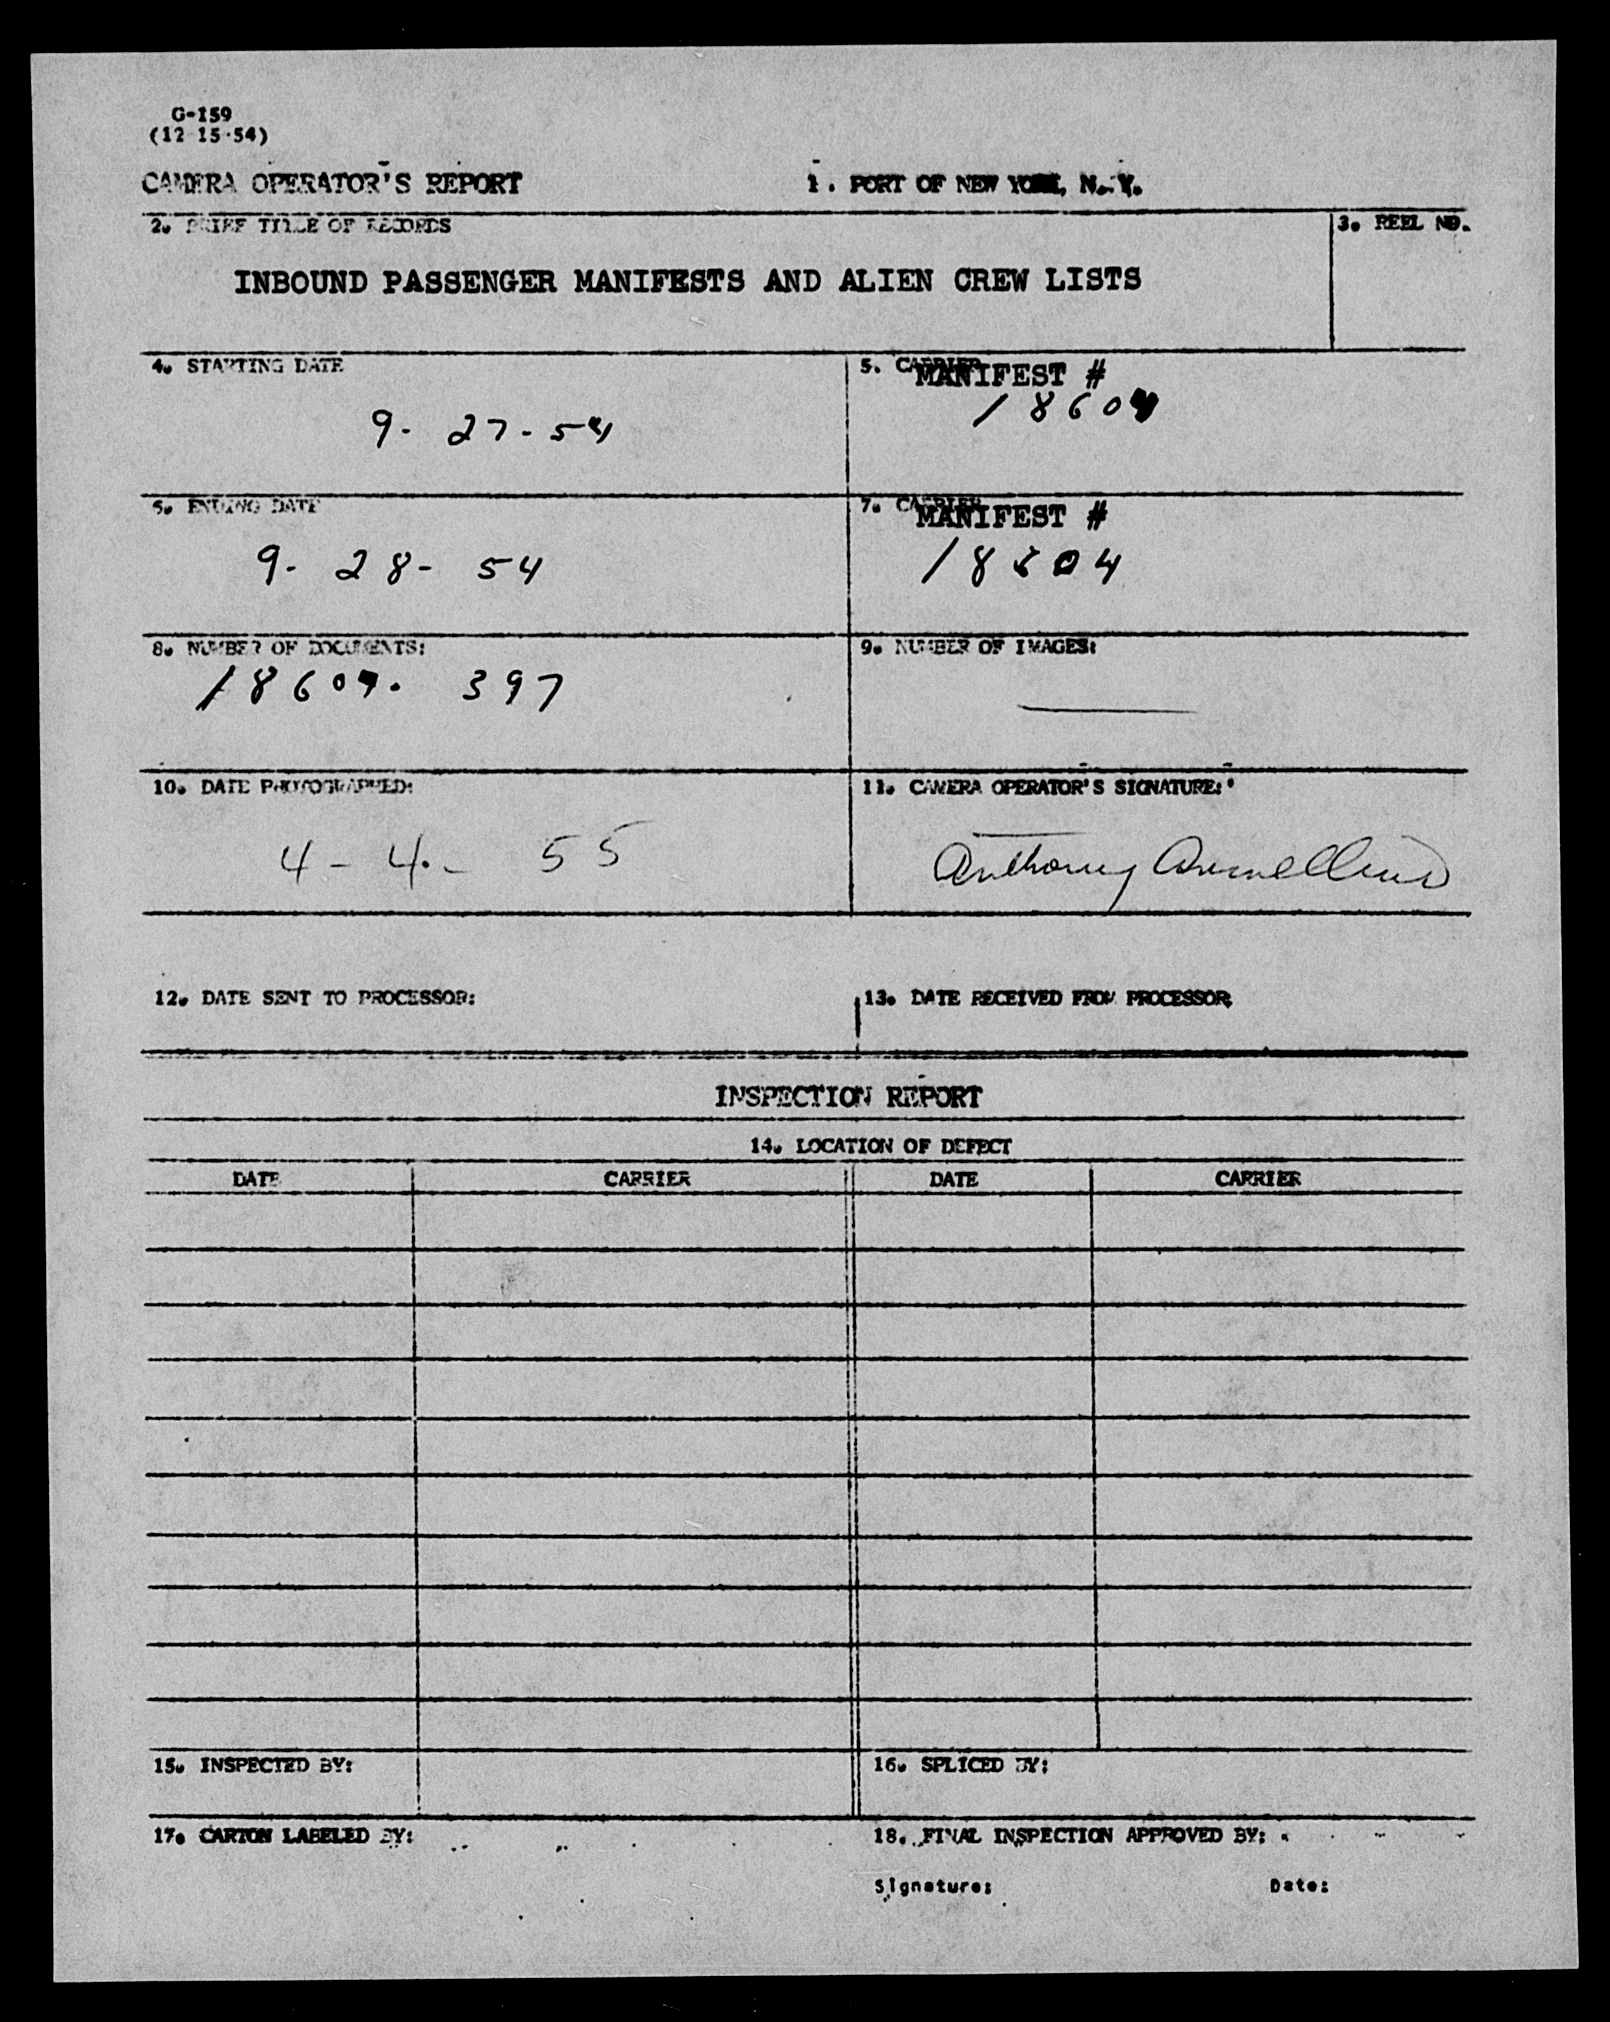 G-159
(12-15-54)
CAMERA OPERATOR'S REPORT
1. PORT OF NEW YORK, N. Y.
2. BRIEF TITLE OF RECORDS
3. REEL NO.
INBOUND PASSENGER MANIFESTS AND ALIEN CREW LISTS
4. STARTING DATE
5. CARRIER
MANIFEST #
9- 27-54
6. ENDING DATE
7. CARRIER
MANIFEST #
9- 28- 54
8. NUMBER OF DOCUMENTS:
9. NUMBER OF IMAGES:
397
10. DATE PHOTOGRAPHED:
11. CAMERA OPERATOR'S SIGNATURE:
4-4-55
Anthony
12. DATE SENT TO PROCESSOR:
13. DATE RECEIVED FROM PROCESSOR
INSPECTION REPORT
14. LOCATION OF DEFECT
DATE CARRIER DATE CARRIER
15. INSPECTED BY:
16. SPLICED BY:
17. CARTON LABELED BY:
18. FINAL INSPECTION APPROVED BY:
Signature: Date: